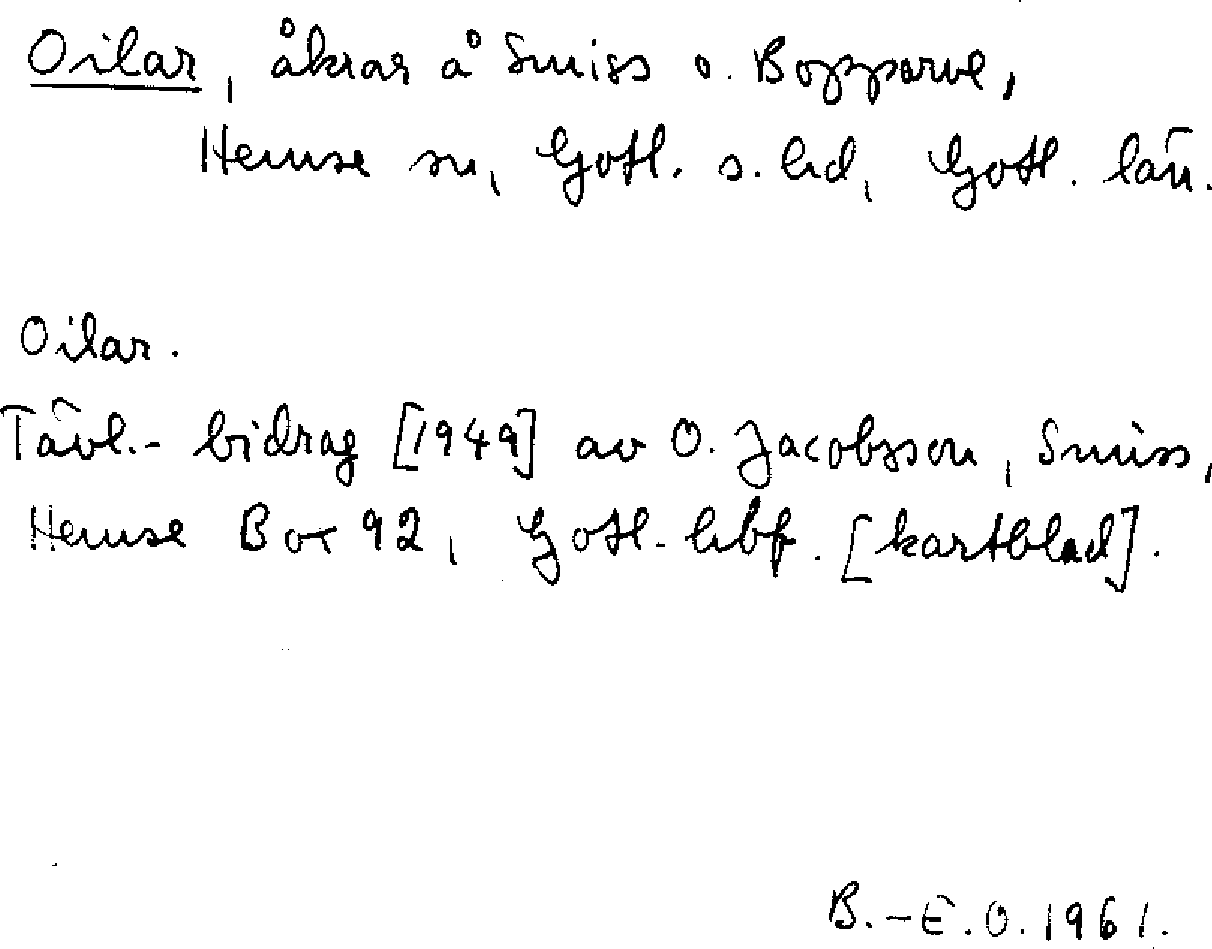 Oilar, åkrar å Smiss o. Bopparve,
Hemse sn, Gotl. s. hd, Gotl. län.
Oilar.
Tävl.-bidrag [1949] av O. Jacobsson, Smiss,
Hemse Box 92, Gotl. hbf. [kartblad].
B.-E.O. 1961.